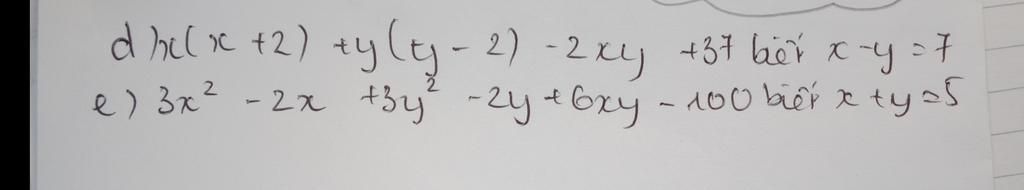 d) x(x+2) +y(y-2) -2xy +37 biết x-y=7
e) 3x² -2x +3y² -2y+6xy -100 biết x+y=5